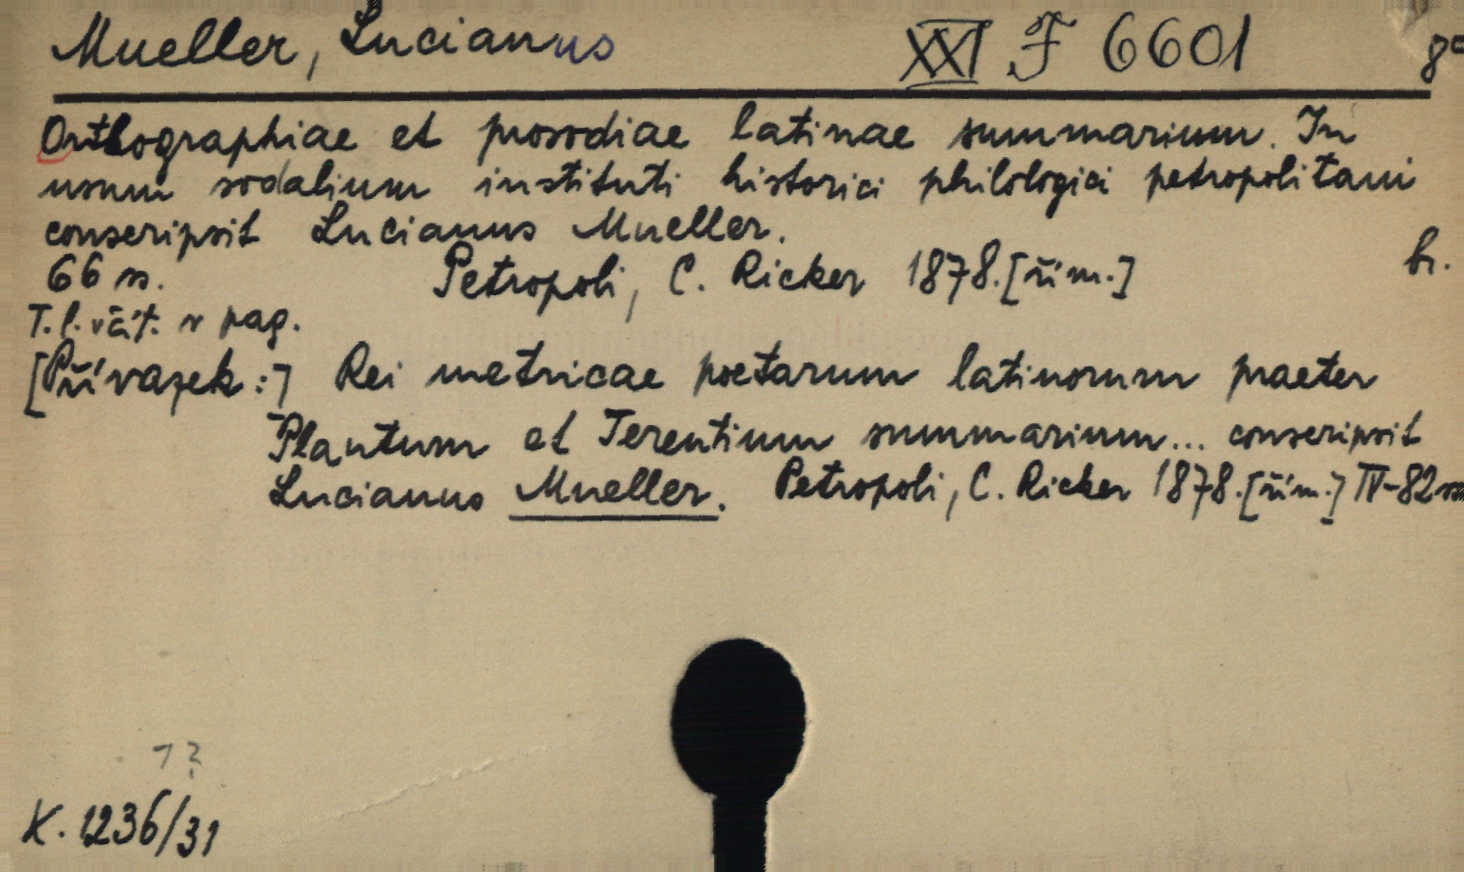 Mueller, Lucianus XXI F 6601 8°
Orthographiae et prosodiae latinae summarium. In
usum sodalium instituti historici philologici petropolitani
conscripsit Lucianus Mueller.
66 s. Petropoli, C. Ricker 1878. [řím.] br.
T. l. včít. v pag.
[Přívazek:] Rei metricae poetarum latinorum praeter
Plautum et Terentium summarium... conscripsit
Lucianus Mueller. Petropoli, C. Ricker 1878. [řím.] IV-82 s
K. 1236/31